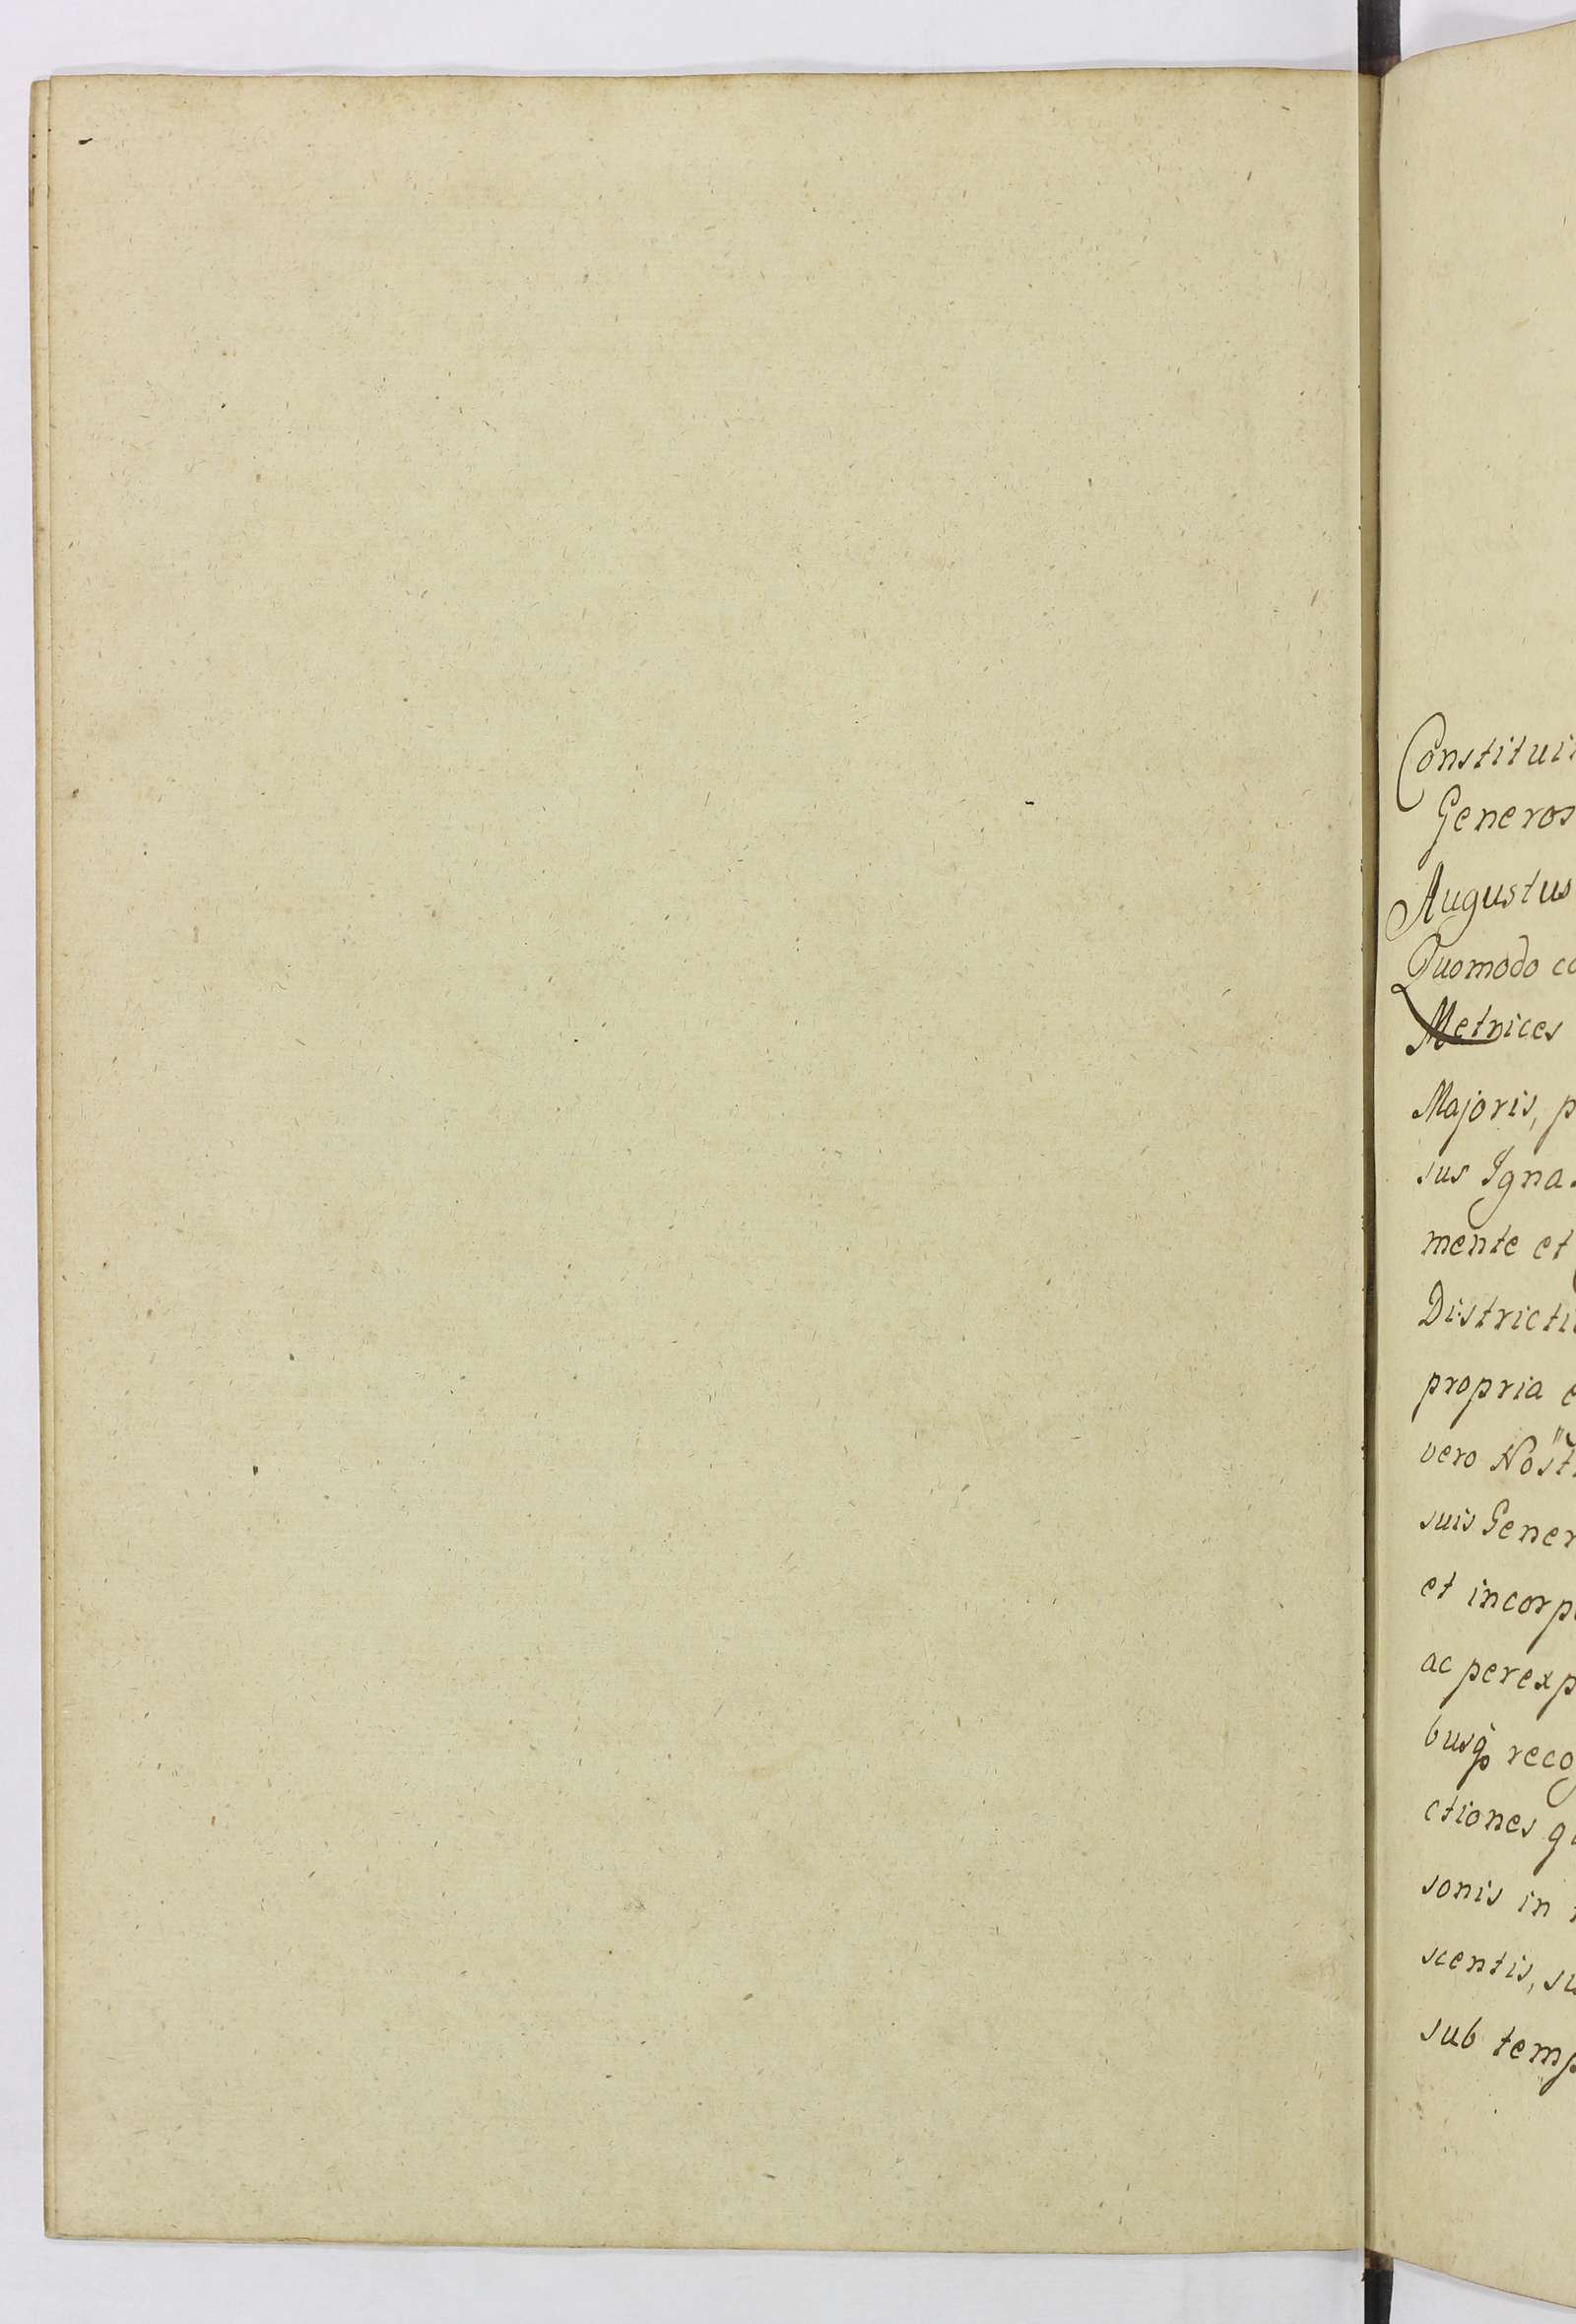 Constitui
Generos
Augustus
Quomodo co
Metrices
Majoris, p
sus Igna
mente et
Districti
propria e
vero Nost
suis Gener
et incorp
ac perexp
busq recog
ctiones q
sonis in
scentis, su
sub temp